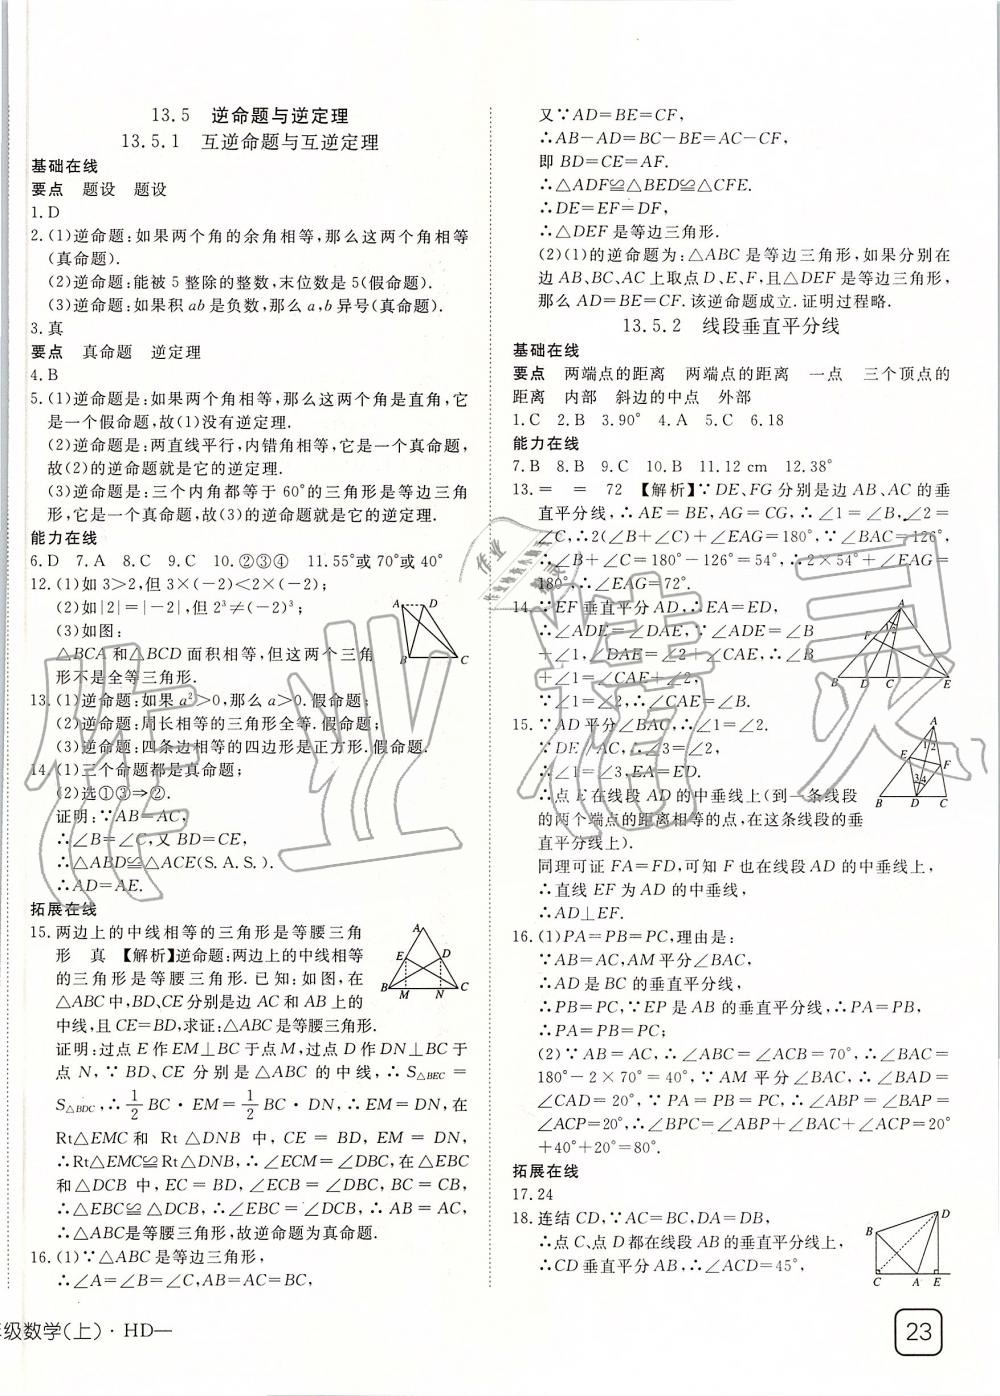 13.5 逆命题与逆定理
13.5.1 互逆命题与互逆定理
基础在线
要点 题设 题设
1.D
2.(1)逆命题:如果两个角的余角相等,那么这两个角相等
(真命题).
(2)逆命题:能被5整除的整数,末位数是5(假命题).
(3)逆命题:如果积ab是负数,那么a,b异号(真命题).
3.真
要点 真命题 逆定理
4.B
5.(1)逆命题是:如果两个角相等,那么这两个角是直角,它
是一个假命题,故(1)没有逆定理.
(2)逆命题是:两直线平行,内错角相等,它是一个真命题,
故(2)的逆命题就是它的逆定理.
(3)逆命题是:三个内角都等于60°的三角形是等边三角
形,它是一个真命题,故(3)的逆命题就是它的逆定理.
能力在线
6.D 7.A 8.C 9.C 10.②③④ 11.55°或70°或40°
12.(1)如3>2,但3×(-2)<2×(-2);
(2)如|2|=|-2|,但2³≠(-2)³;
(3)如图:
△BCA和△BCD面积相等,但这两个三角
形不是全等三角形.
A D
B C
13.(1)逆命题:如果a²>0,那么a>0.假命题;
(2)逆命题:周长相等的三角形全等.假命题;
(3)逆命题:四条边相等的四边形是正方形.假命题.
14.(1)三个命题都是真命题;
(2)选①③⇒②.
证明:∵AB=AC,
∴∠B=∠C,又BD=CE,
∴△ABD≌△ACE(S.A.S.),
∴AD=AE.
拓展在线
15.两边上的中线相等的三角形是等腰三角
形 真 【解析】逆命题:两边上的中线相等
的三角形是等腰三角形.已知:如图,在
△ABC中,BD、CE分别是边AC和AB上的
中线,且CE=BD,求证:△ABC是等腰三角形.
A
E D
B M N C
证明:过点E作EM⊥BC于点M,过点D作DN⊥BC于
点N,∵BD、CE分别是△ABC的中线,∴S△BEC=
S△BDC,∴1/2 BC·EM=1/2 BC·DN,∴EM=DN,在
Rt△EMC和Rt△DNB中,CE=BD,EM=DN,
∴Rt△EMC≌Rt△DNB,∴∠ECM=∠DBC,在△EBC
和△DCB中,EC=BD,∠ECB=∠DBC,BC=CB,
∴△EBC≌△DCB,∴∠EBC=∠DCB,∴AB=AC,
∴△ABC是等腰三角形,故逆命题为真命题.
16.(1)∵△ABC是等边三角形,
∴∠A=∠B=∠C,AB=AC=BC,
又∵AD=BE=CF,
∴AB-AD=BC-BE=AC-CF,
即BD=CE=AF.
∴△ADF≌△BED≌△CFE.
∴DE=EF=DF,
∴△DEF是等边三角形.
(2)(1)的逆命题为:△ABC是等边三角形,如果分别在
边AB、BC、AC上取点D、E、F,且△DEF是等边三角形,
那么AD=BE=CF.该逆命题成立.证明过程略.
13.5.2 线段垂直平分线
基础在线
要点 两端点的距离 两端点的距离 一点 三个顶点的
距离 内部 斜边的中点 外部
1.C 2.B 3.90° 4.A 5.C 6.18
能力在线
7.B 8.B 9.C 10.B 11.12 cm 12.38°
13.= = 72 【解析】∵DE、FG分别是边AB、AC的垂
直平分线,∴AE=BE,AG=CG,∴∠1=∠B,∠2=
∠C,∴2(∠B+∠C)+∠EAG=180°,∵∠BAC=126°,
∴∠B+∠C=180°-126°=54°,∴2×54°+∠EAG=
180°,∴∠EAG=72°.
14.∵EF垂直平分AD,∴EA=ED,
∴∠ADE=∠DAE,∵∠ADE=∠B
+∠1,∠DAE=∠2+∠CAE,∴∠B
+∠1=∠2+∠CAE.
∵∠1=∠2,∴∠CAE=∠B.
A
F
B D C E
15.∵AD平分∠BAC,∴∠1=∠2.
∵DE∥AC,∴∠3=∠2,
∴∠1=∠3,EA=ED.
∴点E在线段AD的中垂线上(到一条线段
的两个端点的距离相等的点,在这条线段的垂
直平分线上).
A
1 2
E F
3 4
B D C
同理可证FA=FD,可知F也在线段AD的中垂线上,
∴直线EF为AD的中垂线,
∴AD⊥EF.
16.(1)PA=PB=PC,理由是:
∵AB=AC,AM平分∠BAC,
∴AD是BC的垂直平分线,
∴PB=PC,∵EP是AB的垂直平分线,∴PA=PB,
∴PA=PB=PC;
(2)∵AB=AC,∴∠ABC=∠ACB=70°,∴∠BAC=
180°-2×70°=40°,∵AM平分∠BAC,∴∠BAD=
∠CAD=20°,∵PA=PB=PC,∴∠ABP=∠BAP=
∠ACP=20°,∴∠BPC=∠ABP+∠BAC+∠ACP=20°
+40°+20°=80°.
拓展在线
17.24
18.连结CD,∵AC=BC,DA=DB,
∴点C、点D都在线段AB的垂直平分线上,
∴CD垂直平分AB,∴∠ACD=45°,
D
B
C A E
年级数学(上)·HD—
23
作业精灵